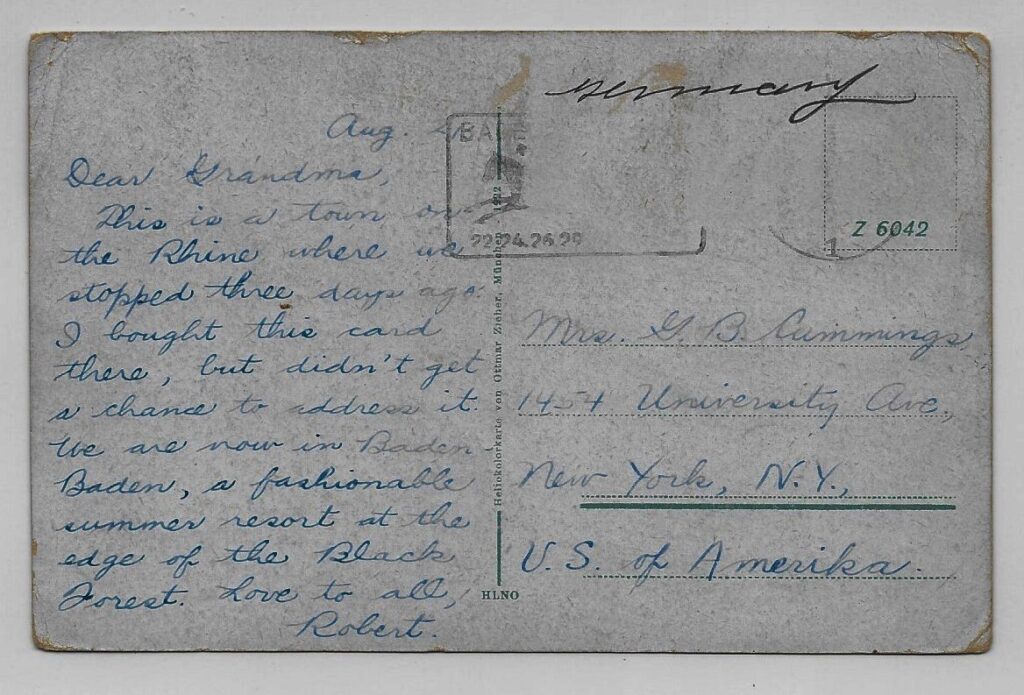 Germany
Aug.
BA
Dear Grandma,
This is a town on
the Rhine where we
stopped three days ago.
I bought this card
there, but didn't get
a chance to address it.
We are now in Baden-
Baden, a fashionable
summer resort at the
edge of the Black
Forest. Love to all,
Robert.
22.24.26.29
1
Z 6042
Heliokolorkarte von Ottmar Zieher, München
HLNO
Mrs. G. B. Cummings
1454 University Ave.,
New York, N.Y.,
U.S. of Amerika.